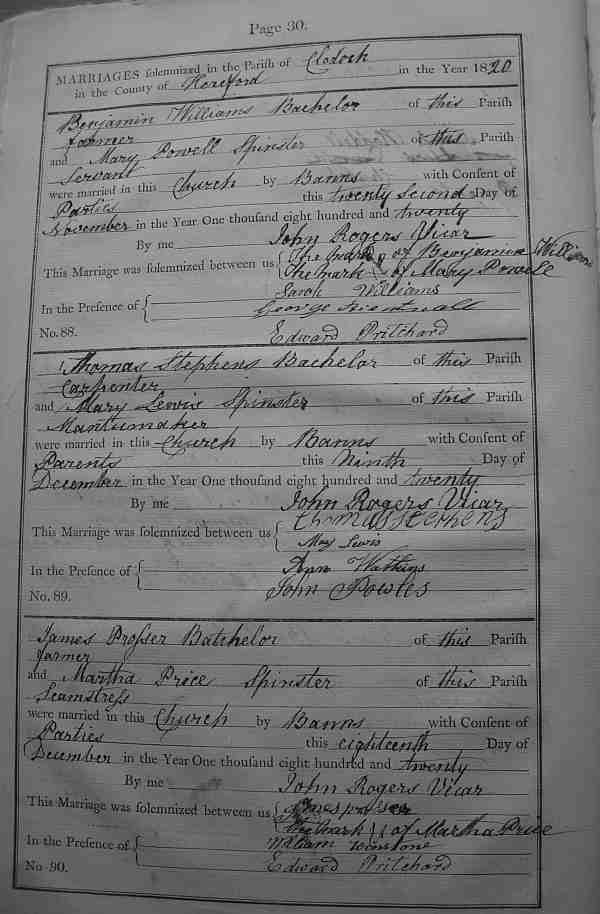 Page 30.
MARRIAGES solemnized in the Parish of Clodock
in the County of Hereford in the Year 1820
Benjamin Williams Bachelor of this Parish
farmer
and Mary Powell Spinster of this Parish
Servant
were married in this Church by Banns with Consent of
Parties this twenty Second Day of
November in the Year One thousand eight hundred and twenty
By me John Rogers Vicar
This Marriage was solemnized between us { The mark of Benjamin Williams
The mark of Mary Powell
In the Presence of { Sarah Williams
George
No. 88. Edward Pritchard
Thomas Stephens Bachelor of this Parish
Carpenter
and Mary Lewis Spinster of this Parish
Mantumaker
were married in this Church by Banns with Consent of
Parents this Ninth Day of
December in the Year One thousand eight hundred and twenty
By me John Rogers Vicar
This Marriage was solemnized between us { thomas Stephens
Mary Lewis
In the Presence of { Ann Watkins
No. 89. John Powles
James Prosser Batchelor of this Parish
farmer
and Martha Price Spinster of this Parish
Seamstress
were married in this Church by Banns with Consent of
Parties this eighteenth Day of
December in the Year One thousand eight hundred and twenty
By me John Rogers Vicar
This Marriage was solemnized between us {
The mark of Martha Price
In the Presence of { William
No 90. Edward Pritchard